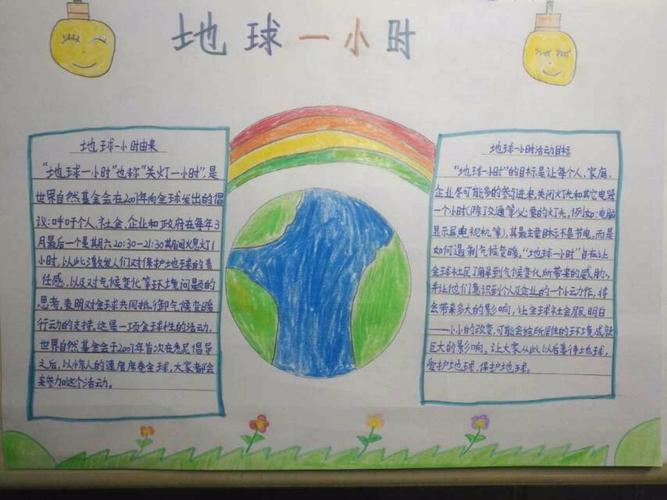 地球一小时
地球一小时由来
"地球一小时"也称"关灯一小时",是
世界自然基金会在2007年向全球发出的倡
议:呼吁个人、社会、企业和政府在每年3
月最后一个星期六20:30-21:30期间熄灯1
小时,以此激发人们对保护地球的责
任感,以及对气候变化等环境问题的
思考,表明对全球共同抵御气候变暖
行动的支持。这是一项全球性的活动,
世界自然基金会于2007年首次在悉尼倡导
之后,以惊人的速度席卷全球,大家都会
来参加这个活动。
地球一小时活动目标
"地球一小时"的目标是让每个人、家庭、
企业尽可能多的参与进来,关闭灯光和其它电器
一个小时(除交通等必要的灯光,例如:电脑
显示屏电视机等),其最主要目标还不是节电,而是
如何遏制气候变暖,"地球一小时"旨在让
全球社区了解到气候变化所带来的威胁,
并让他们意识到个人及企业的一个小动作,将
会带来多大的影响,让全球社会居民明白
——小小的改变,可能会给所居住的环境成就
巨大的影响。让大家从此以后善待地球,
爱护地球,保护地球。